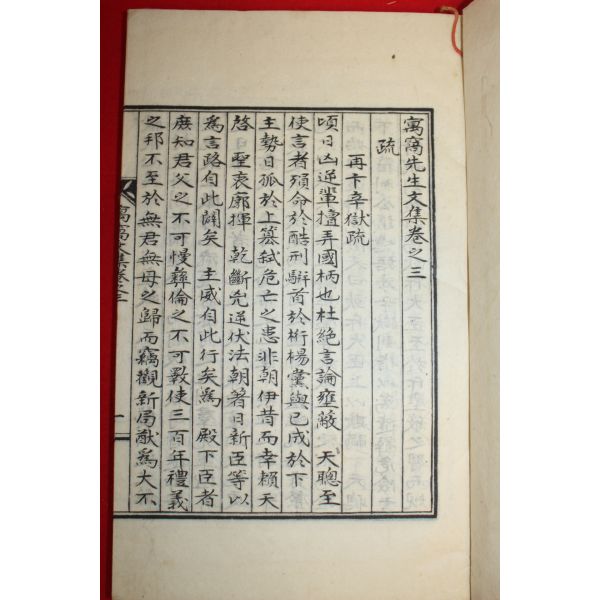 寓窩先生文集卷之三
疏
再卞辛獄疏
頃日凶逆輩擅弄國柄也杜絕言論壅蔽 天聰至
使言者殞命於酷刑騈首於桁楊黨與已成於下
主勢日孤於上簒弑危亡之患非朝伊昔而幸賴天
啓日聖衷廓揮 乾斷兇逆伏法朝著日新臣等以
爲言路自此闢矣 主威自此行矣爲 殿下臣者
庶知君父之不可慢彛倫之不可斁使三百年禮義
之邦不至於無君無母之歸而竊觀新局猷爲大不
寓窩文集卷之三 一